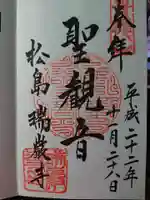 奉拝
平成二十二年
十月二十八日
聖観音
松島瑞巌寺